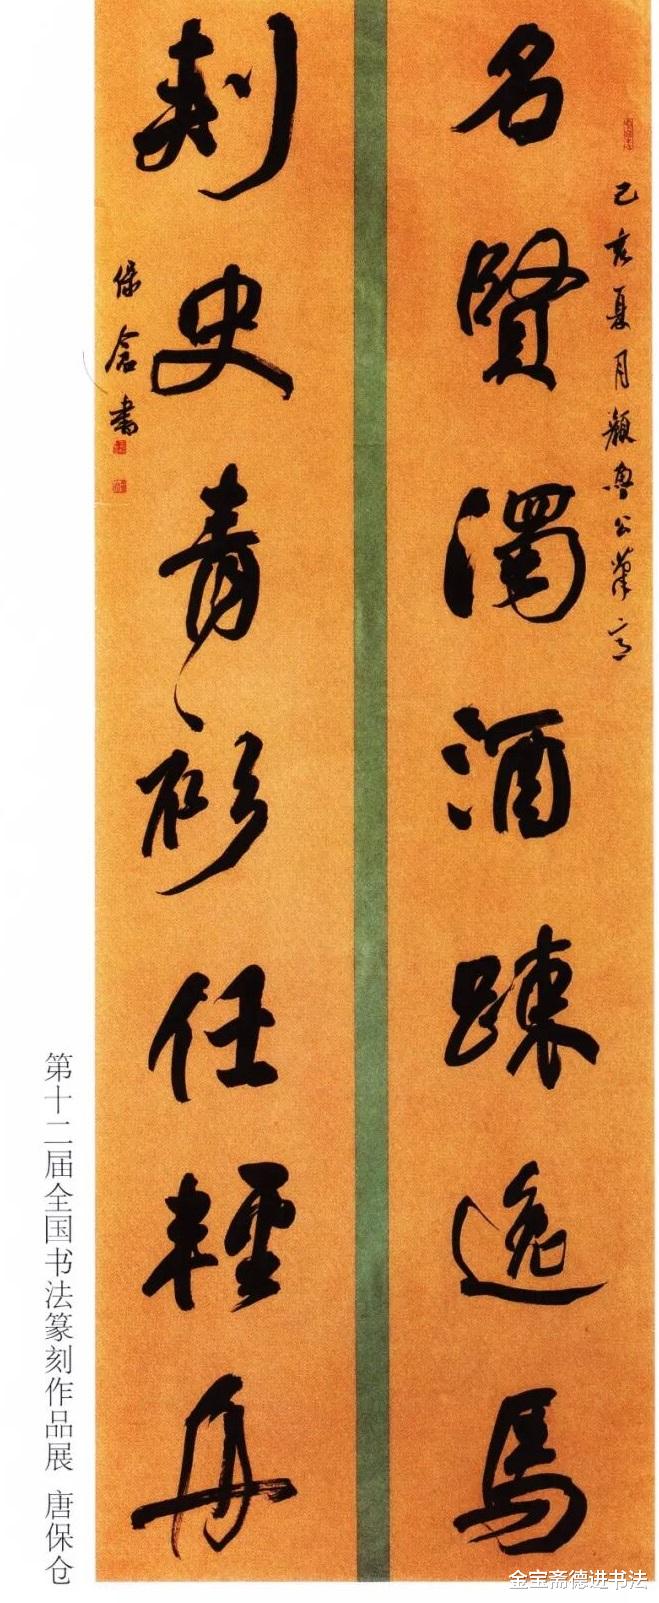 己亥夏月顏魯公筆意
名賢濁酒踈逸馬
刺史青衫任輕舟
保倉書
第十二届全国书法篆刻作品展 唐保仓
金宝斋德进书法